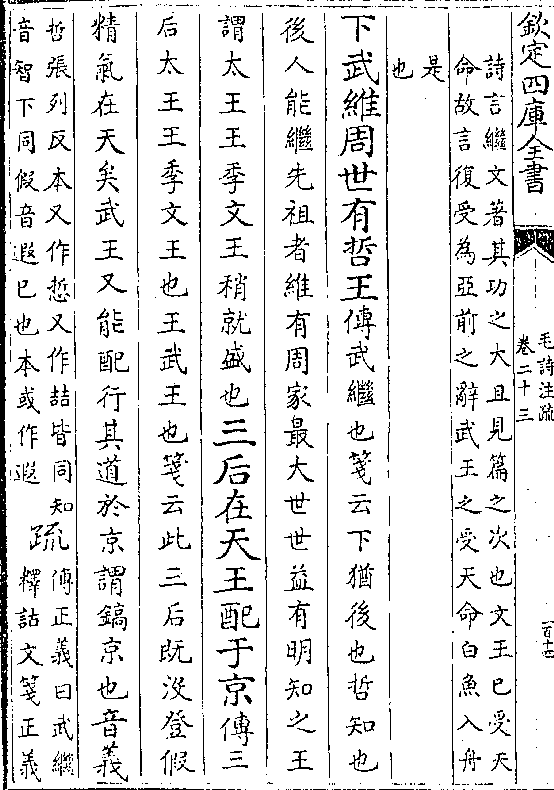 欽定四庫全書
毛詩注疏
卷二十三
詩言繼文著其功之大且見篇之次也文王已受天
命故言復受為亞前之辭武王之受天命白魚入舟
是
也
下武維周世有哲王傳武繼也箋云下猶後也哲知也
後人能繼先祖者維有周家最大世世益有明知之王
謂太王王季文王稍就盛也三后在天王配于京傳三
后太王王季文王也王武王也箋云此三后既沒登假
精氣在天矣武王又能配行其道於京謂鎬京也音義
哲張列反本又作悊又作喆皆同知
音智下同假音遐已也本或作遐
疏
傳正義曰武繼
釋詁文箋正義